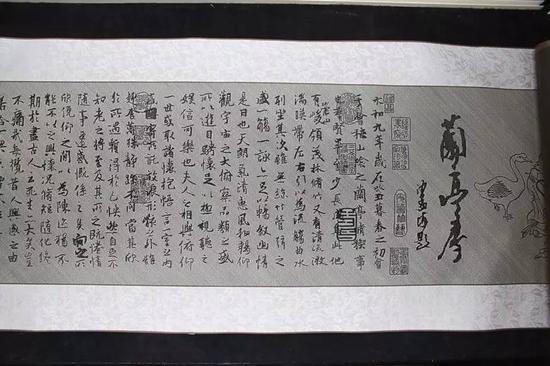 蘭亭序
永和九年歲在癸丑暮春之初會
于會稽山陰之蘭亭脩稧事
也羣賢畢至少長咸集此地
有崇山峻領茂林脩竹又有清流激
湍暎帶左右引以為流觴曲水
列坐其次雖無絲竹管弦之
盛一觴一詠亦足以暢敘幽情
是日也天朗氣清惠風和暢仰
觀宇宙之大俯察品類之盛
所以遊目騁懷足以極視聽之
娛信可樂也夫人之相與俯仰
一世或取諸懷抱悟言一室之內
或因寄所託放浪形骸之外雖
趣舍萬殊靜躁不同當其欣
於所遇暫得於己快然自足不
知老之將至及其所之既惓情
隨事遷感慨係之矣向之所
欣俛仰之間以為陳迹猶不
能不以之興懷況脩短隨化終
期於盡古人云死生亦大矣豈
不痛哉每攬昔人興感之由
若合一